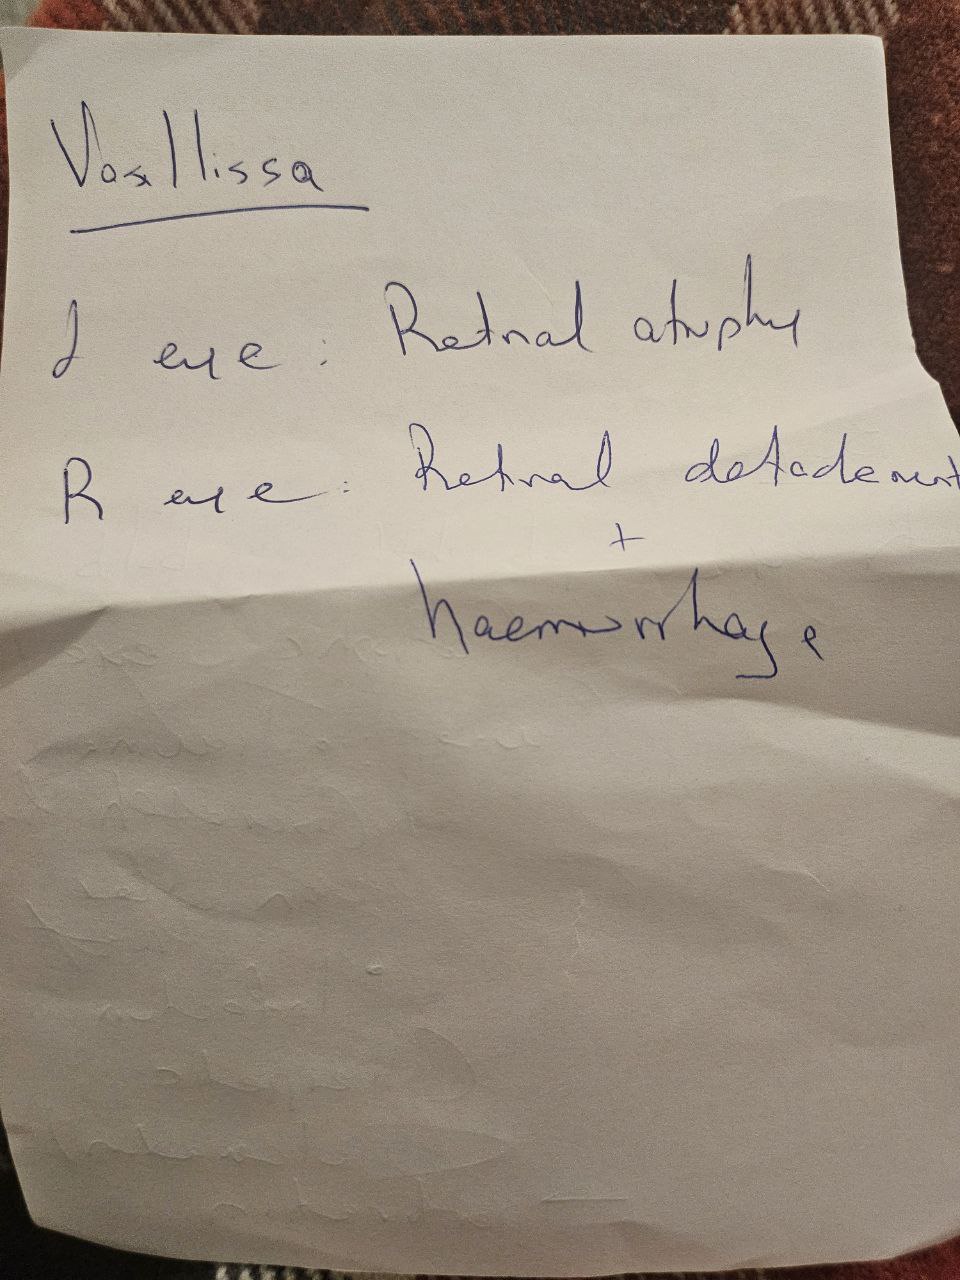 Vasllissa
L eye: Retinal atrophy
R eye: Retinal detachement
+
haemorrhage